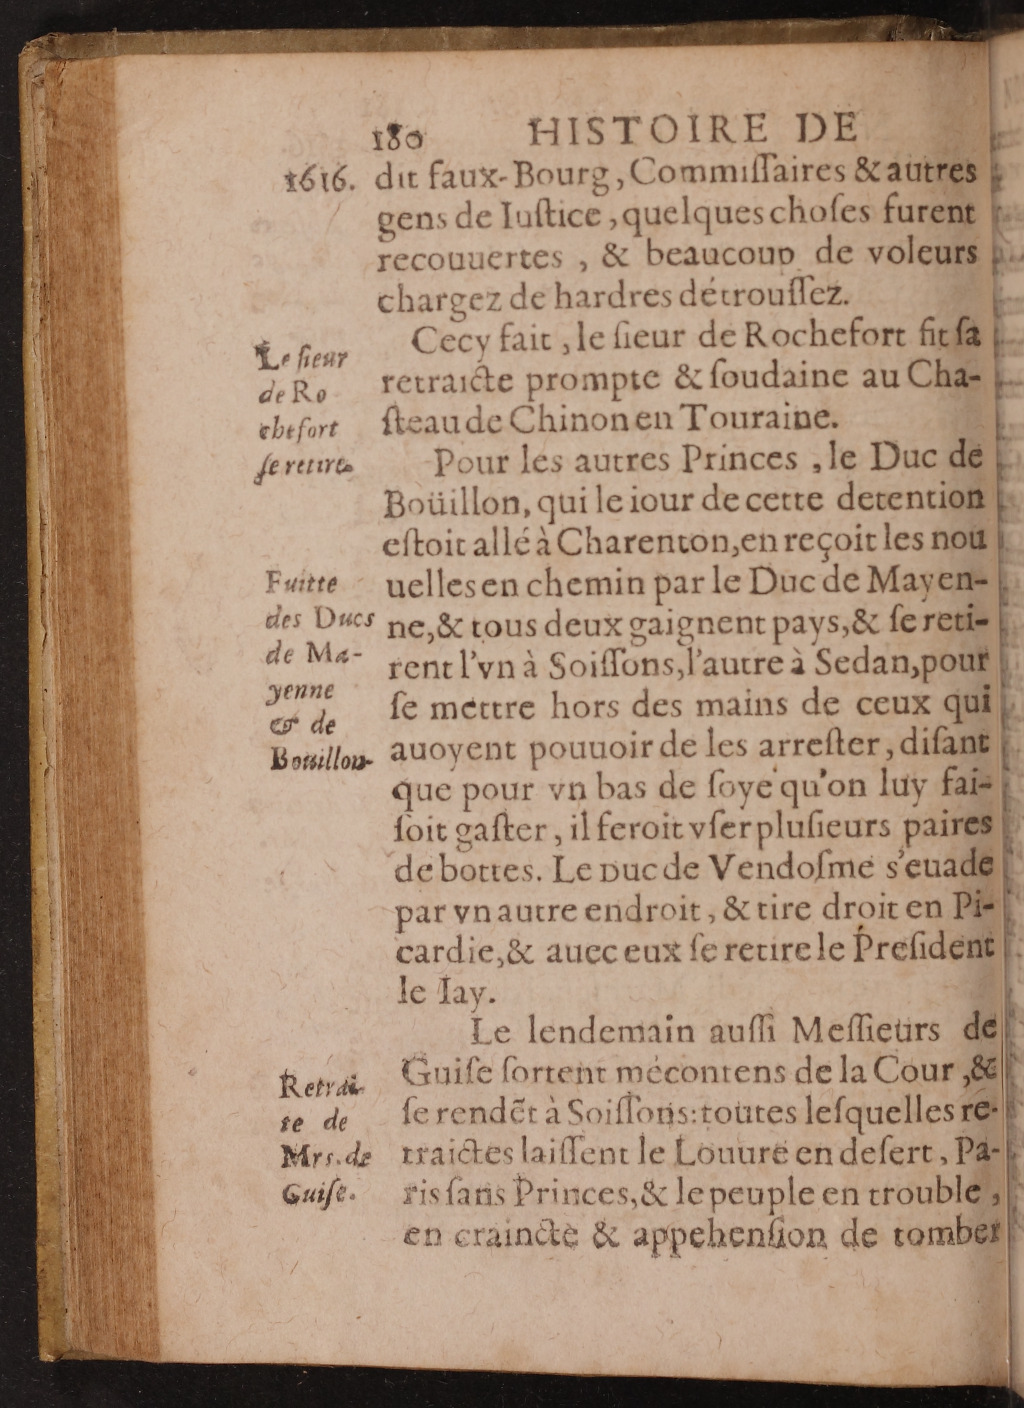 180 HISTOIRE DE
1616. dit faux-Bourg, Commiſſaires & autres
gens de Iuſtice, quelques choſes furent
recouuertes , & beaucoup de voleurs
chargez de hardres détrouſſez.
Cecy fait, le ſieur de Rochefort fit ſa
retraicte prompte & ſoudaine au Cha-
ſteau de Chinon en Touraine.
Le ſieur
de Ro
chefort
ſe retire.
Pour les autres Princes , le Duc de
Boüillon, qui le iour de cette detention
eſtoit allé à Charenton, en reçoit les nou
uelles en chemin par le Duc de Mayen-
ne, & tous deux gaignent pays, & ſe reti-
rent l'vn à Soiſſons, l'autre à Sedan, pour
ſe mettre hors des mains de ceux qui
auoyent pouuoir de les arreſter, diſant
que pour vn bas de ſoye qu'on luy fai-
ſoit gaſter, il feroit vſer pluſieurs paires
de bottes. Le Duc de Vendoſme s'euade
par vn autre endroit, & tire droit en Pi-
cardie, & auec eux ſe retire le Preſident
le Iay.
Fuitte
des Ducs
de Ma-
yenne
& de
Bouillon.
Le lendemain auſſi Meſſieurs de
Guiſe ſortent mécontens de la Cour, &
ſe rendẽt à Soiſſons: toutes leſquelles re-
traictes laiſſent le Louure en deſert, Pa-
ris ſans Princes, & le peuple en trouble,
en craincte & appehenſion de tomber
Retrai-
te de
Mrs. de
Guiſe.